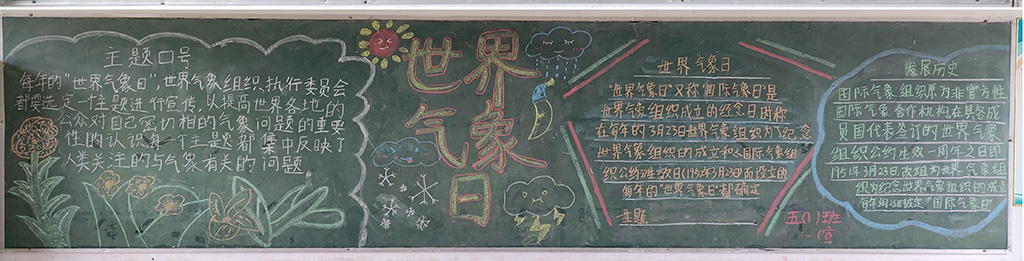 主题口号
每年的"世界气象日",世界气象组织执行委员会
都要选定一个主题进行宣传,以提高世界各地的
公众对自己密切相的气象问题的重要
性的认识每一个主题都集中反映了
人类关注的与气象有关的问题
世界
气象
日
世界气象日
"世界气象日"又称"国际气象日"是
世界气象组织成立的纪念日时称
在每年的3月23日世界气象组织为了纪念
世界气象组织的成立和《国际气象组
织公约》生效日(1950年3月23日)而设立的
每年的"世界气象日"都确定
一主题
发展历史
国际气象组织原为非官方性
国际气象合作机构在其各成
员国代表签订的世界气象
组织公约生效一周年之日即
1951年3月23日改组为世界气象组
织为纪念世界气象组织的成立
每年3月23日给定"国际气象日"
五(1)班
宣